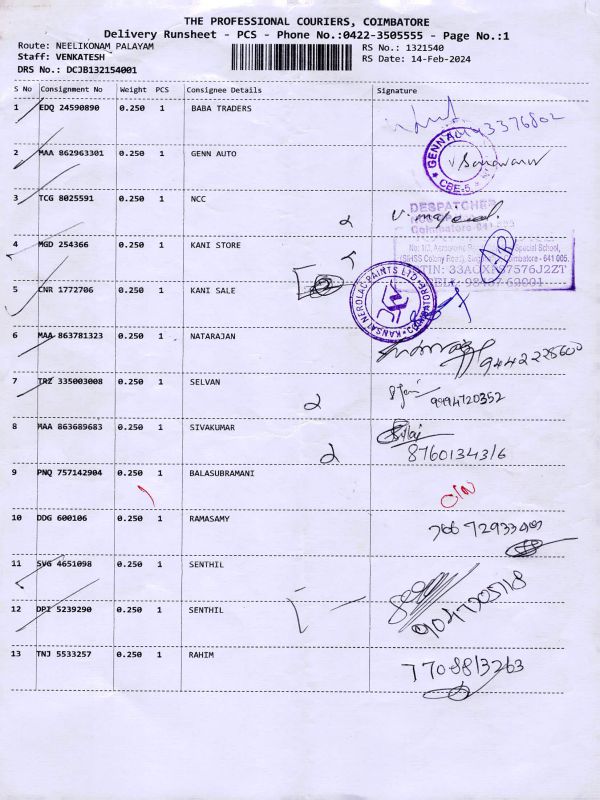 THE PROFESSIONAL COURIERS, COIMBATORE
Delivery Runsheet - PCS - Phone No.:0422-3505555 - Page No.:1
Route: NEELIKONAM PALAYAM
RS No.: 1321540
Staff: VENKATESH
RS Date: 14-Feb-2024
DRS No.: DCJB132154001
S No Consignment No Weight PCS Consignee Details Signature
1 EDQ 24590890 0.250 1 BABA TRADERS
2 MAA 862963301 0.250 1 GENN AUTO
GENN
CBE-5
3 TCG 8025591 0.250 1 NCC
DESPATCHED
Coimbatore-641 005
4 MGD 254366 0.250 1 KANI STORE
Special School,
(SIHSS Colony Road), Coimbatore - 641 005.
5 CNR 1772706 0.250 1 KANI SALE
KANSAI NEROLAC PAINTS LTD
6 MAA 863781323 0.250 1 NATARAJAN
9442228600
7 TRZ 335003008 0.250 1 SELVAN
9994720352
8 MAA 863689683 0.250 1 SIVAKUMAR
8760134316
9 PNQ 757142904 0.250 1 BALASUBRAMANI
10 DDG 600106 0.250 1 RAMASAMY
11 SVG 4651098 0.250 1 SENTHIL
12 DPI 5239290 0.250 1 SENTHIL
13 TNJ 5533257 0.250 1 RAHIM
7708813263